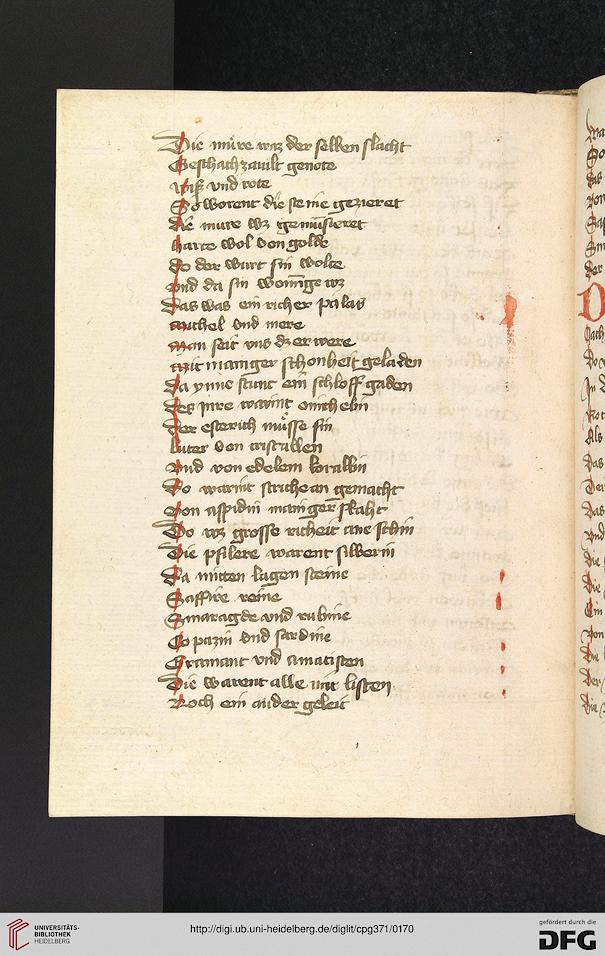 Die mure waz der selben slacht
Geschachzauilt genote
wiß vnd rote
So worent die steine gezieret
die mure wz gemúsieret
harte wol von golde
do der wurt sin wolte
vnd da sin woninge wz
das was ein richer palas
michel vnd mere
man seit vns dz er were
mit maniger schonheit geladen
da ynne stunt ein schloff gaden
des jnre warint
der esterich můsse sin
luter von cristallen
vnd von edelem korallin
Do warint striche an gemacht
von aspidin manger slaht
Do wz grosse richeit ane schin
Die pfilere warent silberin
Da mitten lagen steine
Saffire reine
Smaragde vnd rubine
Topazin vnd sardine
Gramant vnd amatisten
Die warent alle mit listen
Noch ein ander geleit
UNIVERSITÄTS-
BIBLIOTHEK
HEIDELBERG
http://digi.ub.uni-heidelberg.de/diglit/cpg371/0170
gefördert durch die
DFG